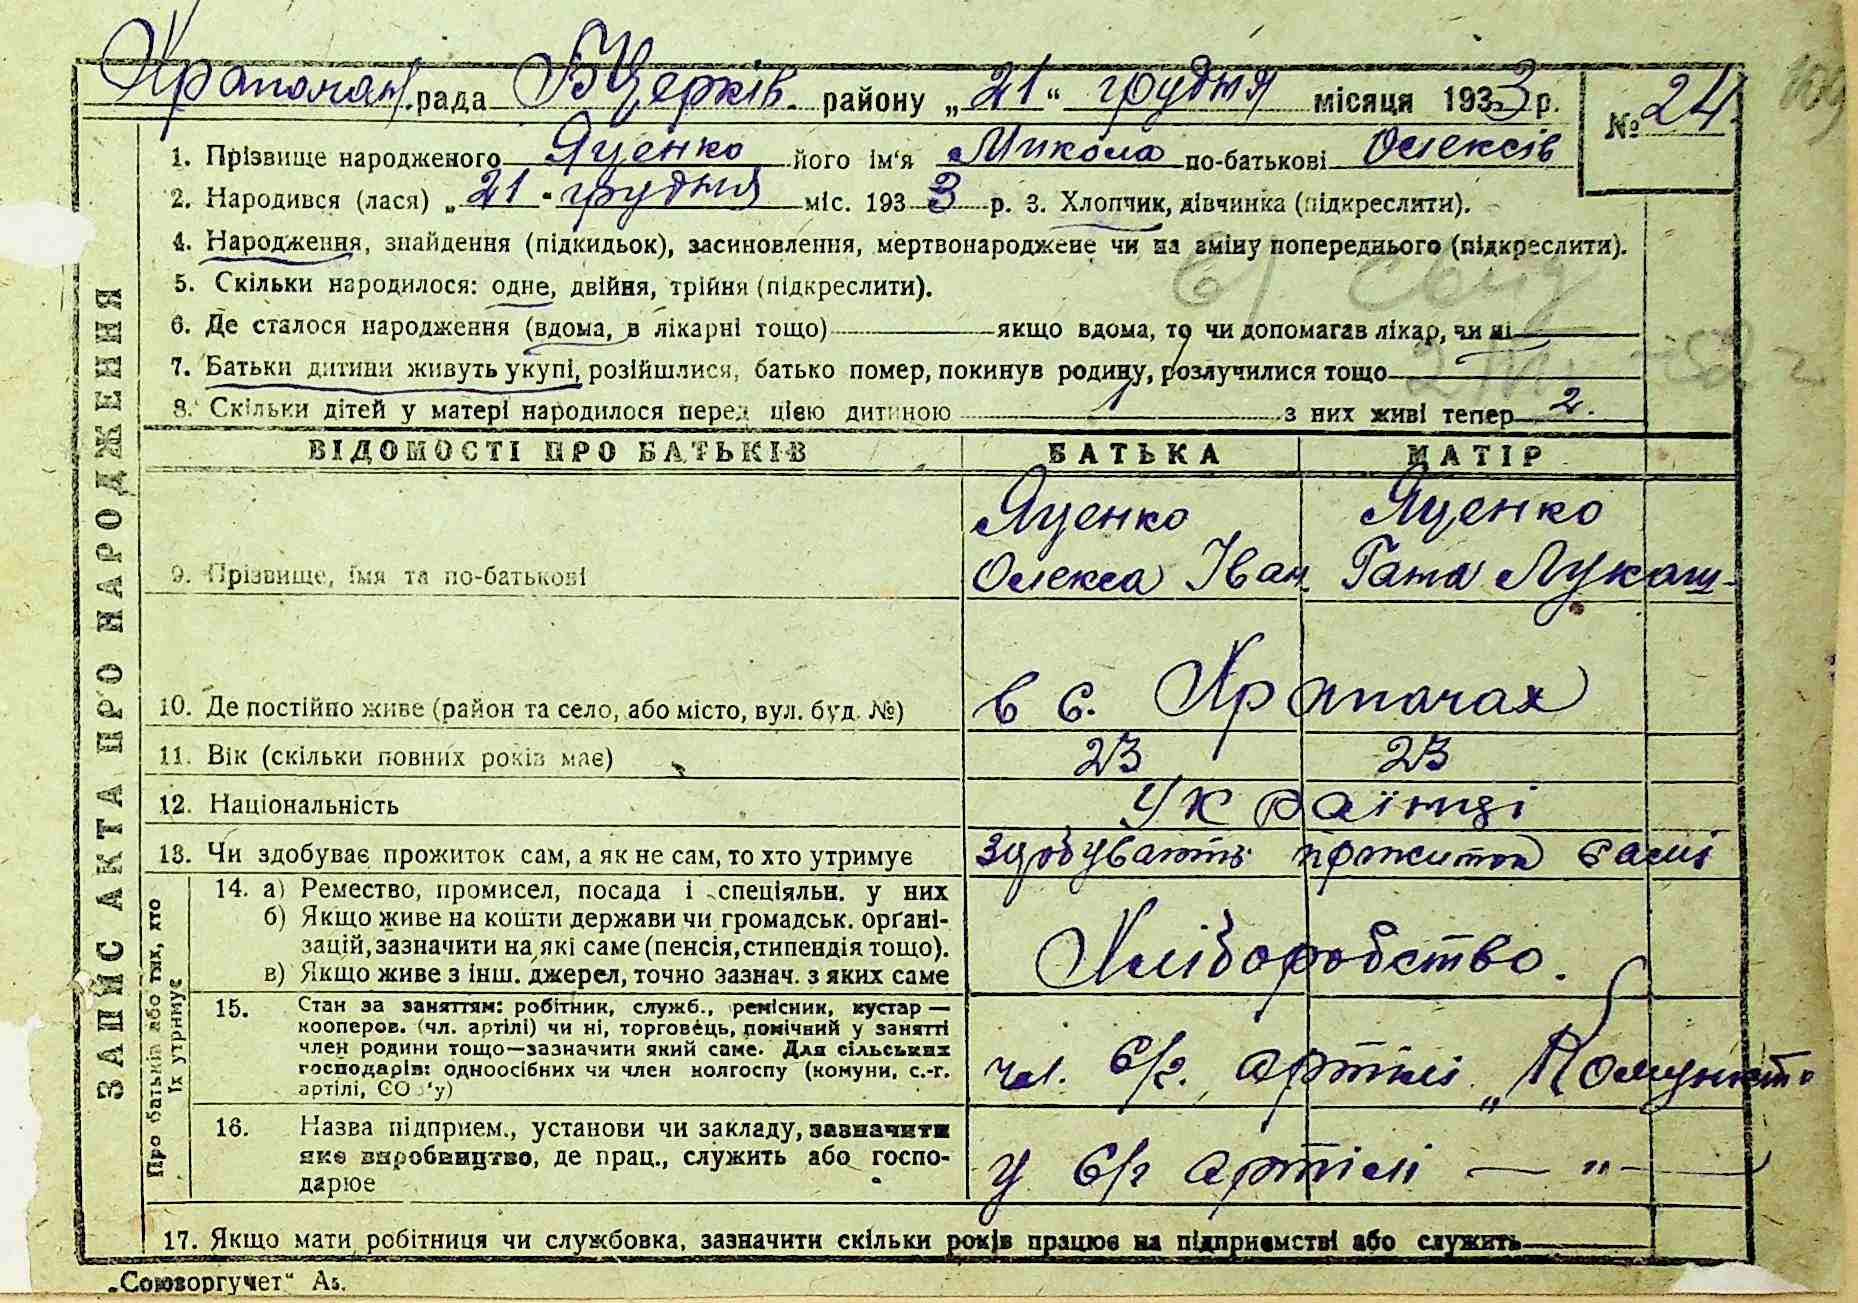 Храпачан. рада БЦерків. району „21“ грудня місяця 1933 р. № 24.
109
1. Прізвище народженого Яценко його ім'я Микола по-батькові Олексів
2. Народився (лася) „21“ грудня міс. 1933 р. 3. Хлопчик, дівчинка (підкреслити).
4. Народження, знайдення (підкидьок), засиновлення, мертвонароджене чи на зміну попереднього (підкреслити).
5. Скільки народилося: одне, двійня, трійня (підкреслити).
6. Де сталося народження (вдома, в лікарні тощо) якщо вдома, то чи допомагав лікар, чи ні
7. Батьки дитини живуть укупі, розійшлися, батько помер, покинув родину, розлучилися тощо
8. Скільки дітей у матері народилося перед цією дитиною 1 з них живі тепер 2.
ЗАПИС АКТА ПРО НАРОДЖЕННЯ
ВІДОМОСТІ ПРО БАТЬКІВ БАТЬКА МАТІР
Яценко Яценко
9. Прізвище, їмя та по-батькові Олекса Іван Гата Лукаш-
10. Де постійно живе (район та село, або місто, вул. буд. №) в с. Храпачах
11. Вік (скільки повних років має) 23 23
12. Національність Українці
13. Чи здобуває прожиток сам, а як не сам, то хто утримує здобувають прожиток самі
Про батьків або тих, хто
їх утримує
14. а) Ремество, промисел, посада і спеціяльн. у них
б) Якщо живе на кошти держави чи громадськ. орґані-
зацій, зазначити на які саме (пенсія, стипендія тощо). Хліборобство.
в) Якщо живе з інш. джерел, точно зазнач. з яких саме
15. Стан за заняттям: робітник, служб., ремісник, кустар —
кооперов. (чл. артілі) чи ні, торговець, помічний у занятті
член родини тощо—зазначити який саме. Для сільських
господарів: одноосібних чи член колгоспу (комуни, с.-г. чл. с/г. артілі „Комуніст"
артілі, СО 'у)
16. Назва підприєм., установи чи закладу, зазначити
яке виробництво, де прац., служить або госпо- у с/г артілі — " —
дарює
17. Якщо мати робітниця чи службовка, зазначити скільки років працює на підприємстві або служить
„Союзоргучет“ Аз.